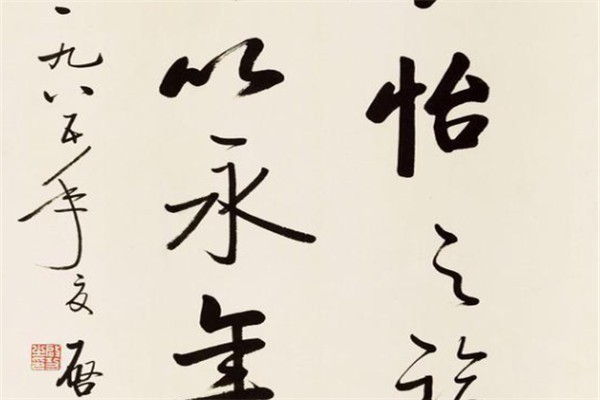 怡之福
以永年
一九八五年夏 启